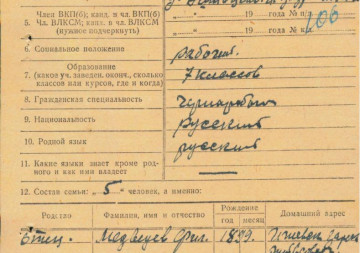 Член ВКП(б); канд. в чл. ВКП(б) 19 года № п/б
5. Чл. ВЛКСМ, канд. в чл. ВЛКСМ 19 года №
(нужное подчеркнуть) 19 года №
6. Социальное положение рабочий
Образование
7. (какое уч. заведен. оконч., сколько 7 классов
классов или курсов, где и когда)
8. Гражданская специальность
9. Национальность русский
10. Родной язык русский
11. Какие языки знает кроме род-
ного и как ими владеет —
12. Состав семьи: „5“ человека, а именно:
Родство Фамилия, имя и отчество Рождение Домашний адрес
год месяц
Отец Медведев 1899